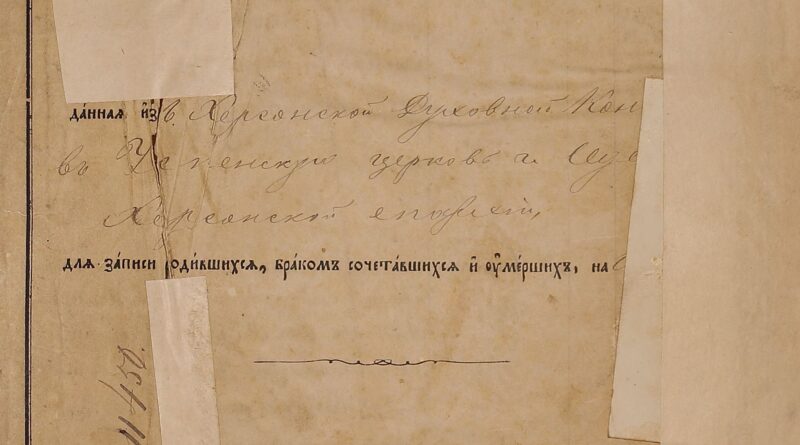 да́нная и҆зъ Херсонской Духовной Кон
въ Успенскую церковь г.
Херсонской епархіи,
для за́писи роди́вшихся, бра́комъ сочета́вшихся и҆ ᲂу҆ме́ршихъ, на
11450